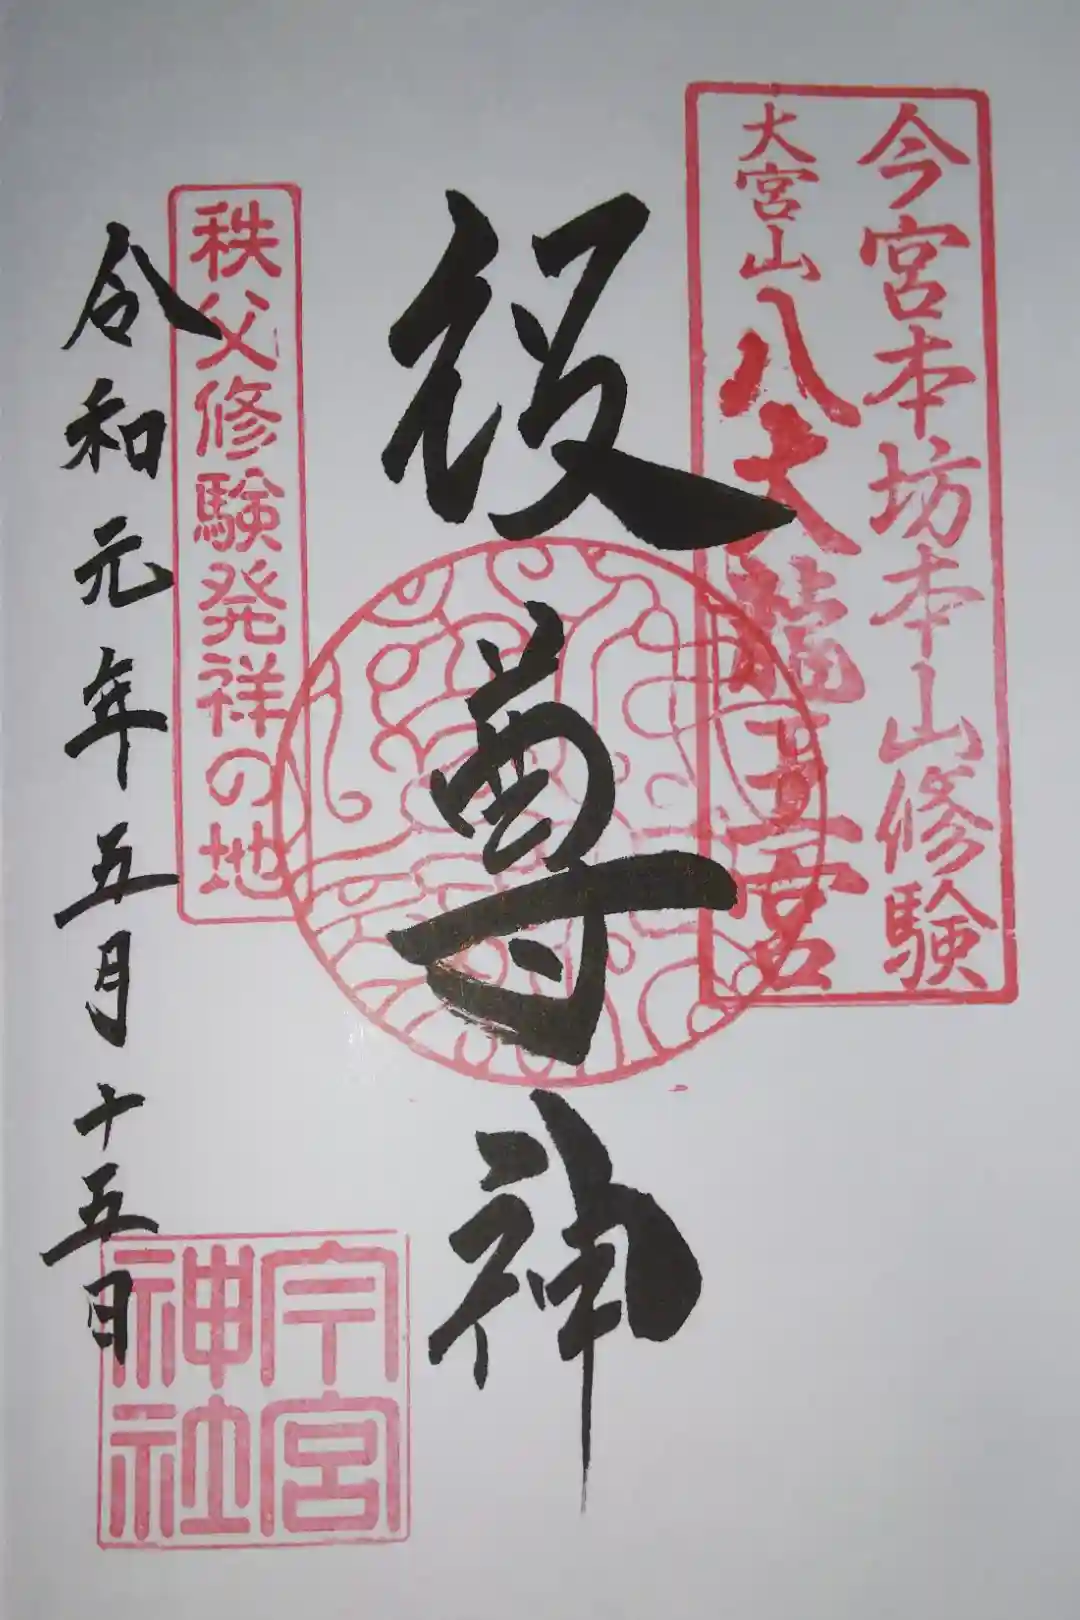 今宮本坊本山修験
大宮山八大龍王宮
役尊神
秩父修験発祥の地
令和元年五月十五日
今宮
神社